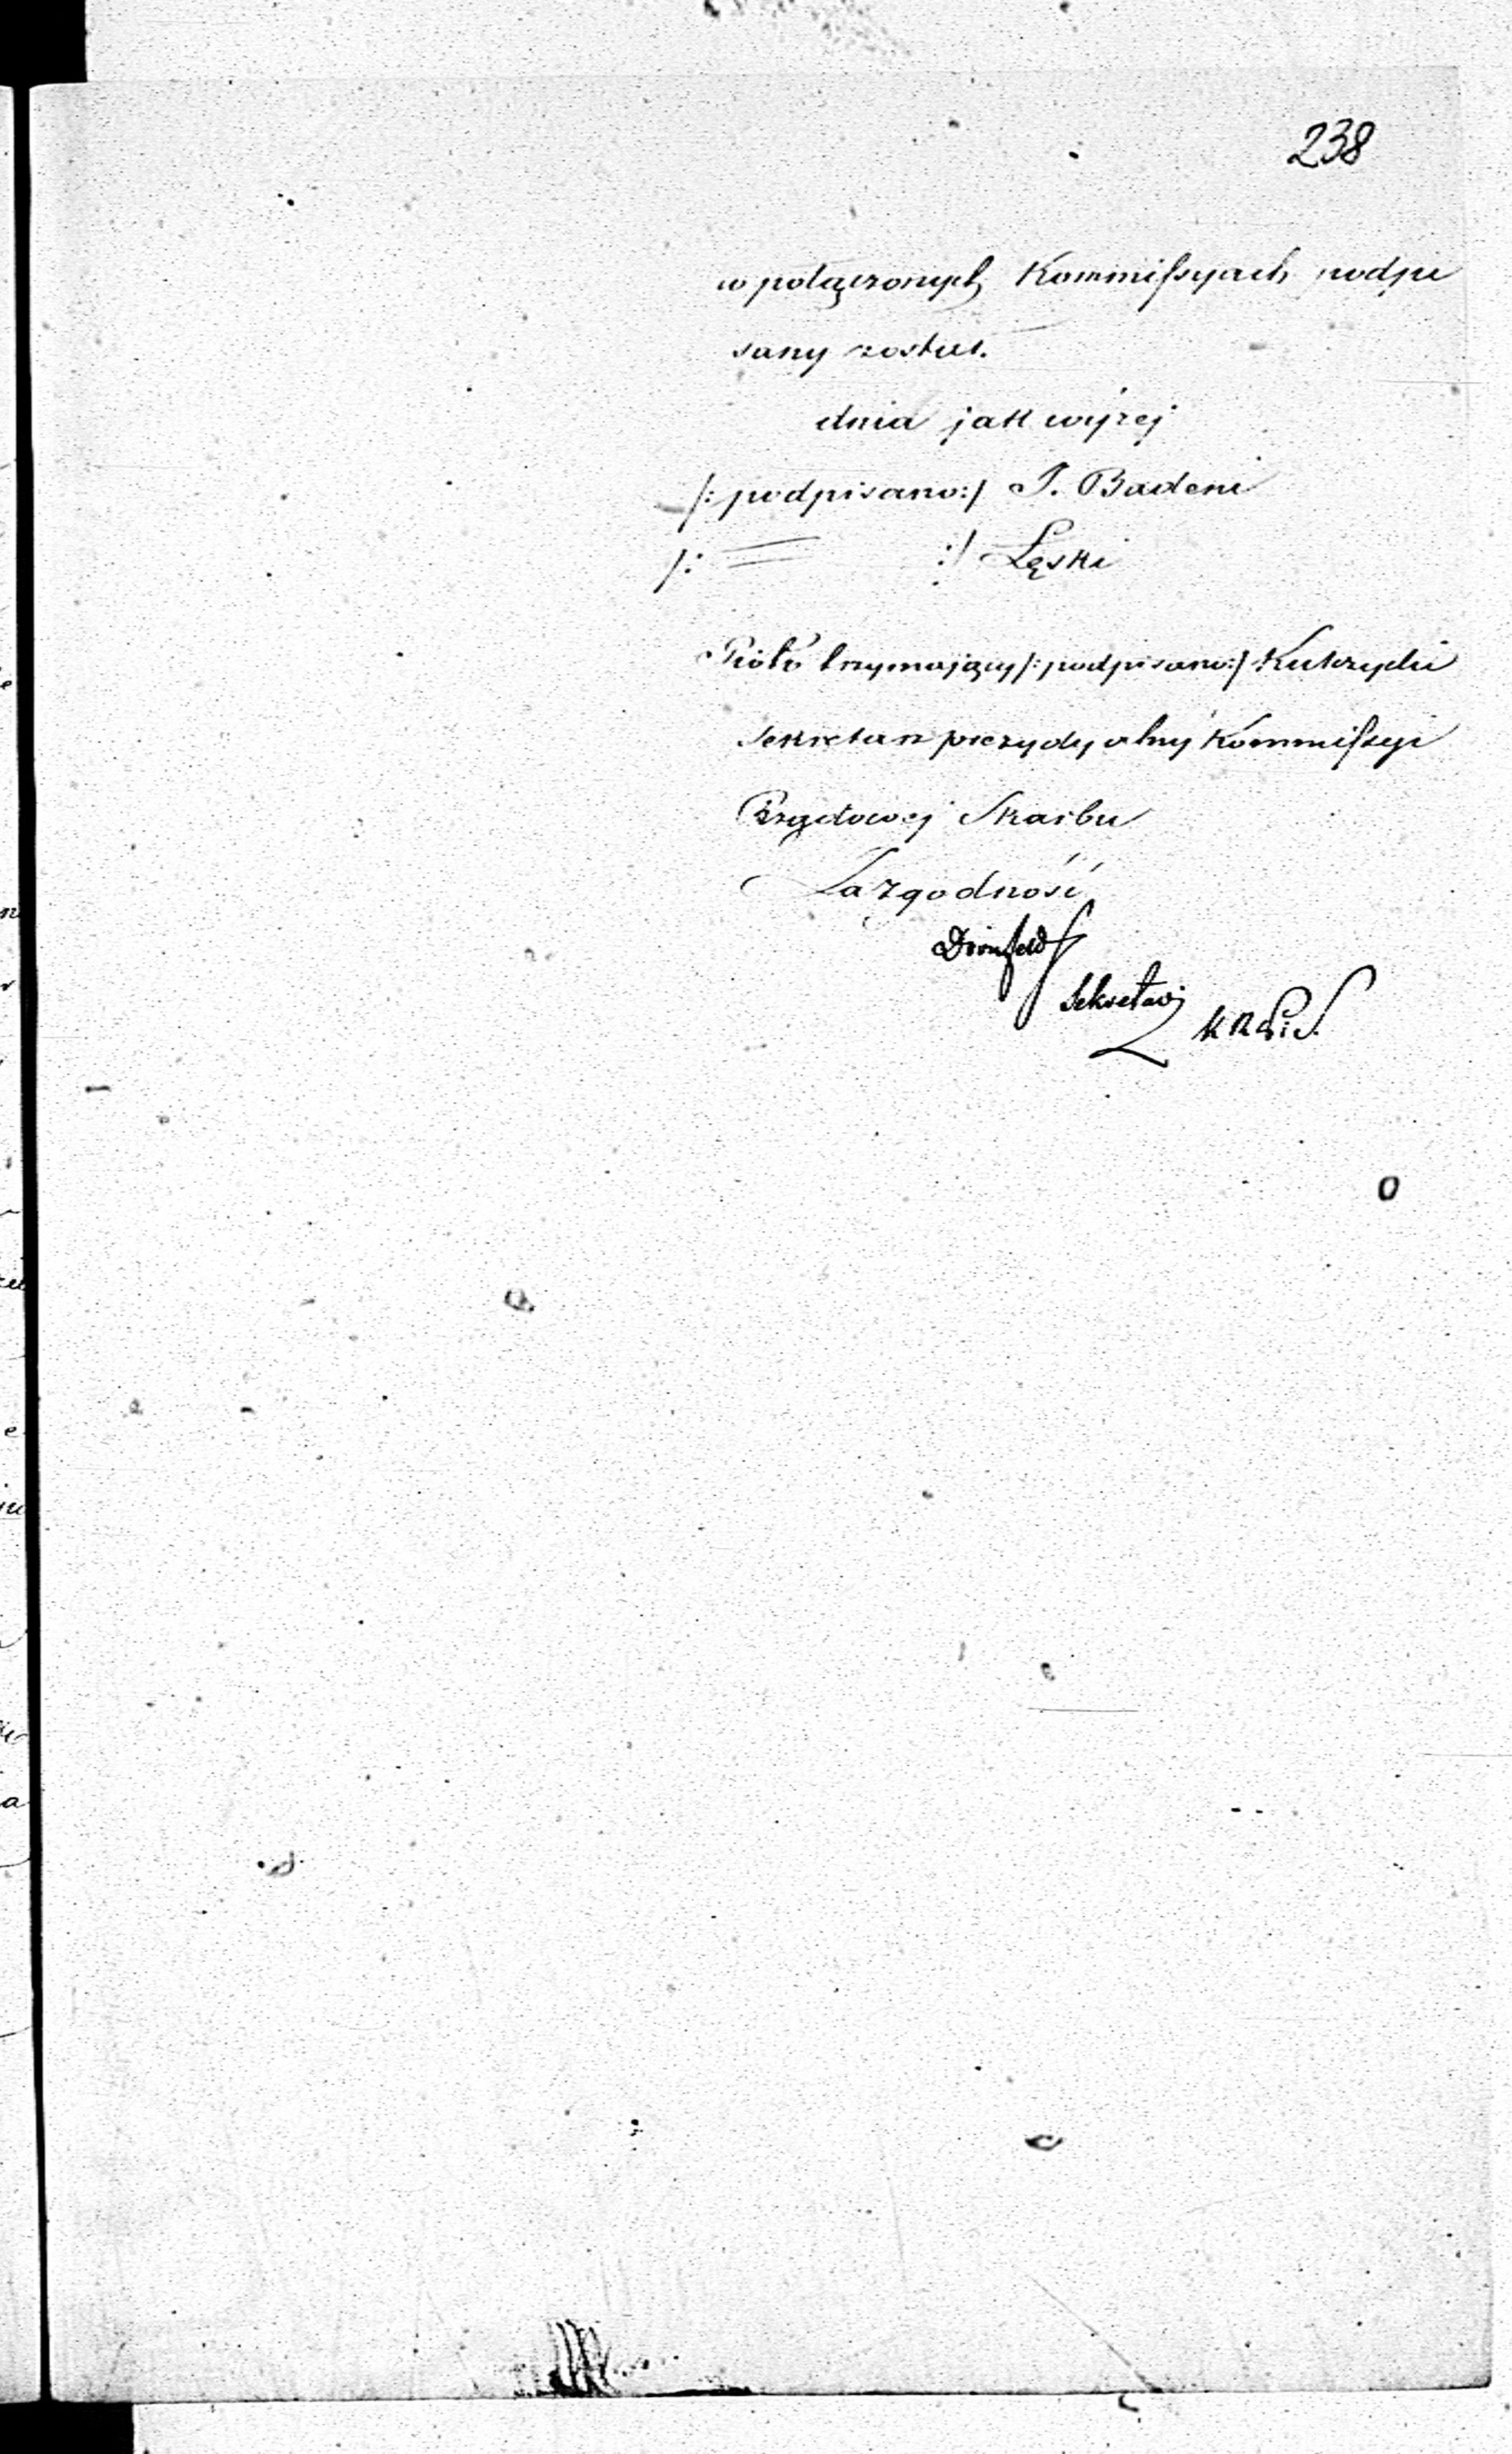 238
w połączonych Kommissyach podpi
sany został.
dnia jak wyżej
/: podpisano :/ J. Badeni
/: = :/ Łęski
Pióro trzymający /: podpisano :/ Kutrzycki
Sekretarz prezydyalny Kommissyi
Rządowej Skarbu
Za zgodność
Sekretarz